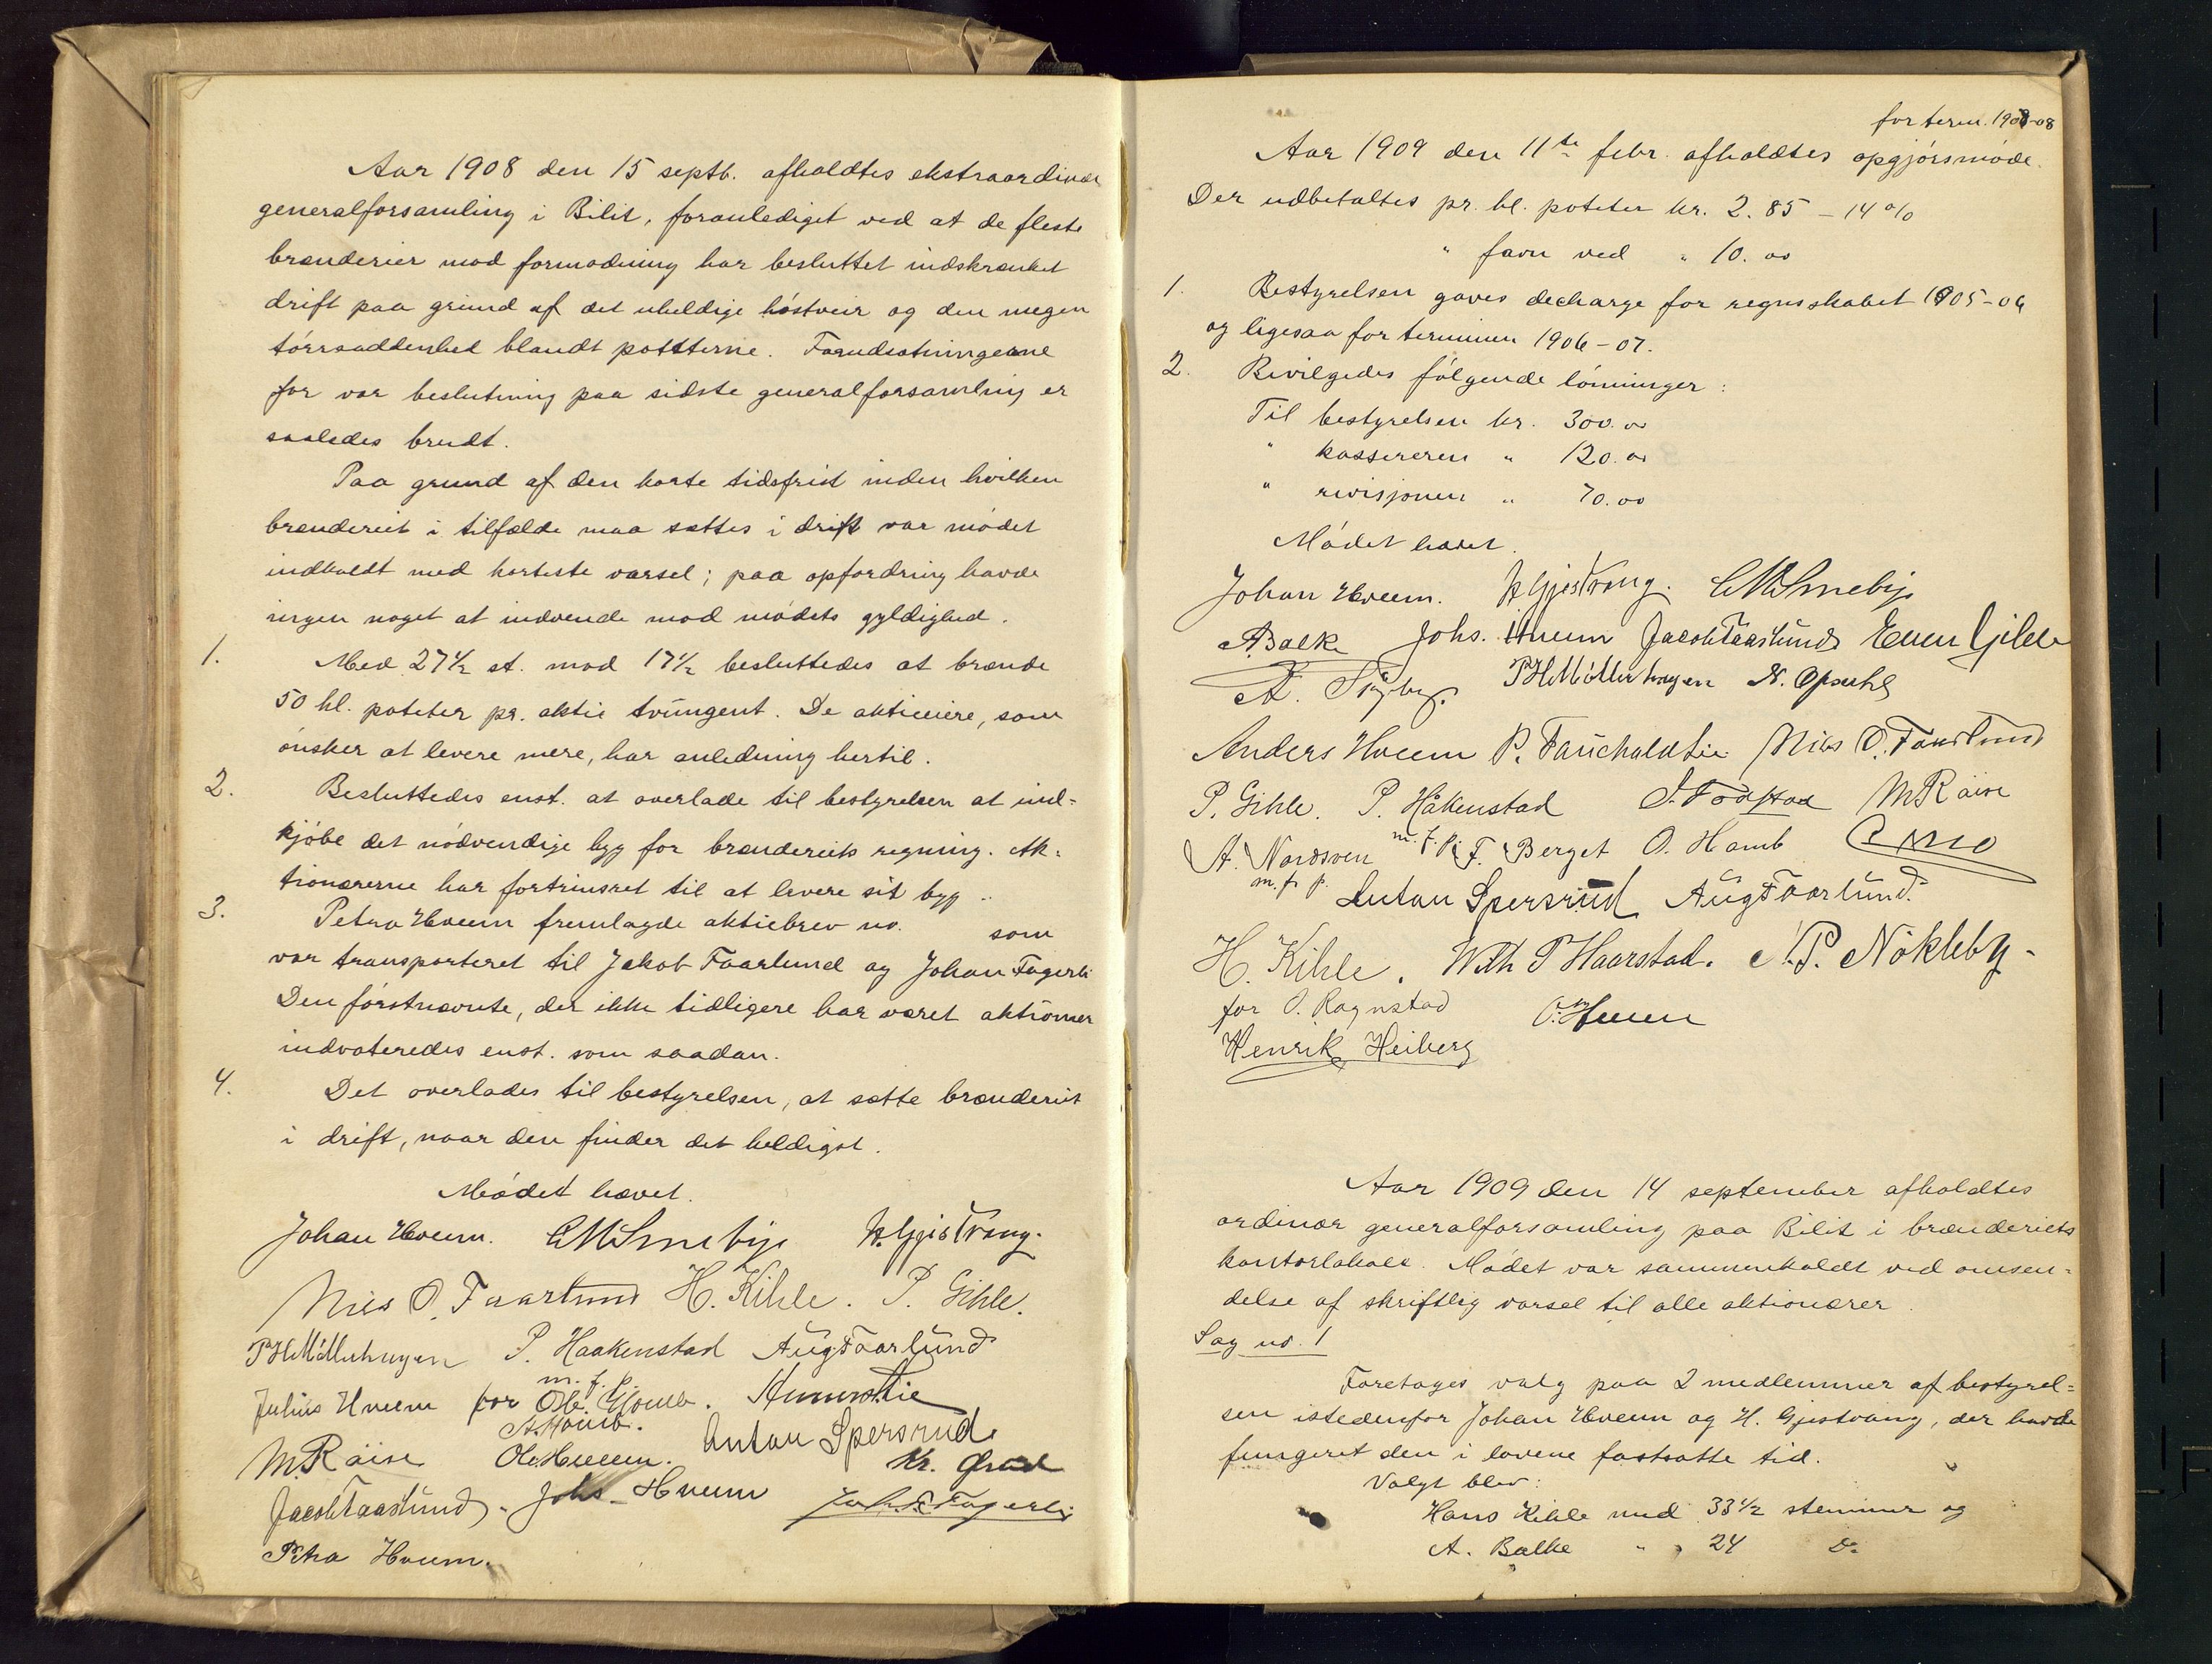 Aar 1908 den 15 septb. afholdtes ekstraordinær
generalforsamling i Bilit, foranlediget ved at de fleste
brænderier mod formodning har besluttet indskrænket
drift paa grund af det uheldige høstveir og den megen
tørraaddenhed blandt potetterne. Forudsætningerne
for vor beslutning paa sidste generalforsamling er
saaledes brudt.
Paa grund af den korte tidsfrist inden hvilken
brænderiet i tilfælde maa sættes i drift var mødet
indkaldt med korteste varsel; paa opfordring havde
ingen noget at indvende mod mødets gyldighed.
1. Med 27½ st. mod 17½ besluttedes at brænde
50 hl. poteter pr. aktie tvungent. De aktieeiere, som
ønsker at levere mere, har anledning hertil.
2. Besluttedes enst. at overlade til bestyrelsen at ind-
kjøbe det nødvendige byg for brænderiets regning. Ak-
tionærerne har fortrinsret til at levere sit byg.
3. Petra Hveem fremlagde aktiebrev no. som
var transporteret til Jakob Faarlund og Johan Fagerli
Den førstnævnte, der ikke tidligere har været aktionær
indvoteredes enst. som saadan.
4. Det overlades til bestyrelsen, at sætte brænderiet
i drift, naar den finder det heldigst.
Mødet hævet.
Johan Hveem. CMSmebye H. Gjestvang.
Nils O. Faarlund H. Kihle. P. Gihle.
PHMøllerhagen P. Haakenstad Aug Faarlund
Julius Hveem for Ole Homb. m.f.p.
A. Homb.
M. Røise Ole Hveem. Anton Spersrud
Jacob Faarlund. Johs. Hveem Kr.
Joh. Fagerli
Petra Hveem.
for term. 1907-08
Aar 1909 den 11te febr. afholdtes opgjørsmøde.
Der udbetaltes pr. hl. poteter kr. 2.85 – 14%
" favn ved " 10.00
1. Bestyrelsen gaves decharge for regnskabet 1905-06
og ligesaa for terminen 1906-07.
2. Bevilgedes følgende lønninger:
Til bestyrelsen kr. 300.00
" kassereren " 120.00
" revisjonen " 70.00
Mødet hævet.
Johan Hveem. H. Gjestvang. CMSmebye
A Balke Johs. Hveem Jacob Faarlund Even Gihle
A. PHMøllerhagen N. Opsahl
Anders Hveem P. Fauchaldlie Nils O. Faarlund
P. Gihle. P. Håkenstad M Røise
A. Nordsven m.f.p. F. Berget O. Homb
m.f.p. Anton Spersrud Aug Faarlund.
H. Kihle. Wilh P Haarstad. N.P. Nøkleby
for O. Rognstad O. Hveem
Henrik Heiberg
Aar 1909 den 14 september afholdtes
ordinær generalforsamling paa Bilit i brænderiets
kontorlokale. Mødet var sammenkaldt ved omsen-
delse af skriftlig varsel til alle aktionærer.
Sag no. 1
Foretoges valg paa 2 medlemmer af bestyrel-
sen istedenfor Johan Hveem og H. Gjestvang, der havde
fungeret den i lovene fastsatte tid.
Valgt blev:
Hans Kihle med 33½ stemmer og
A. Balke " " 24 Do